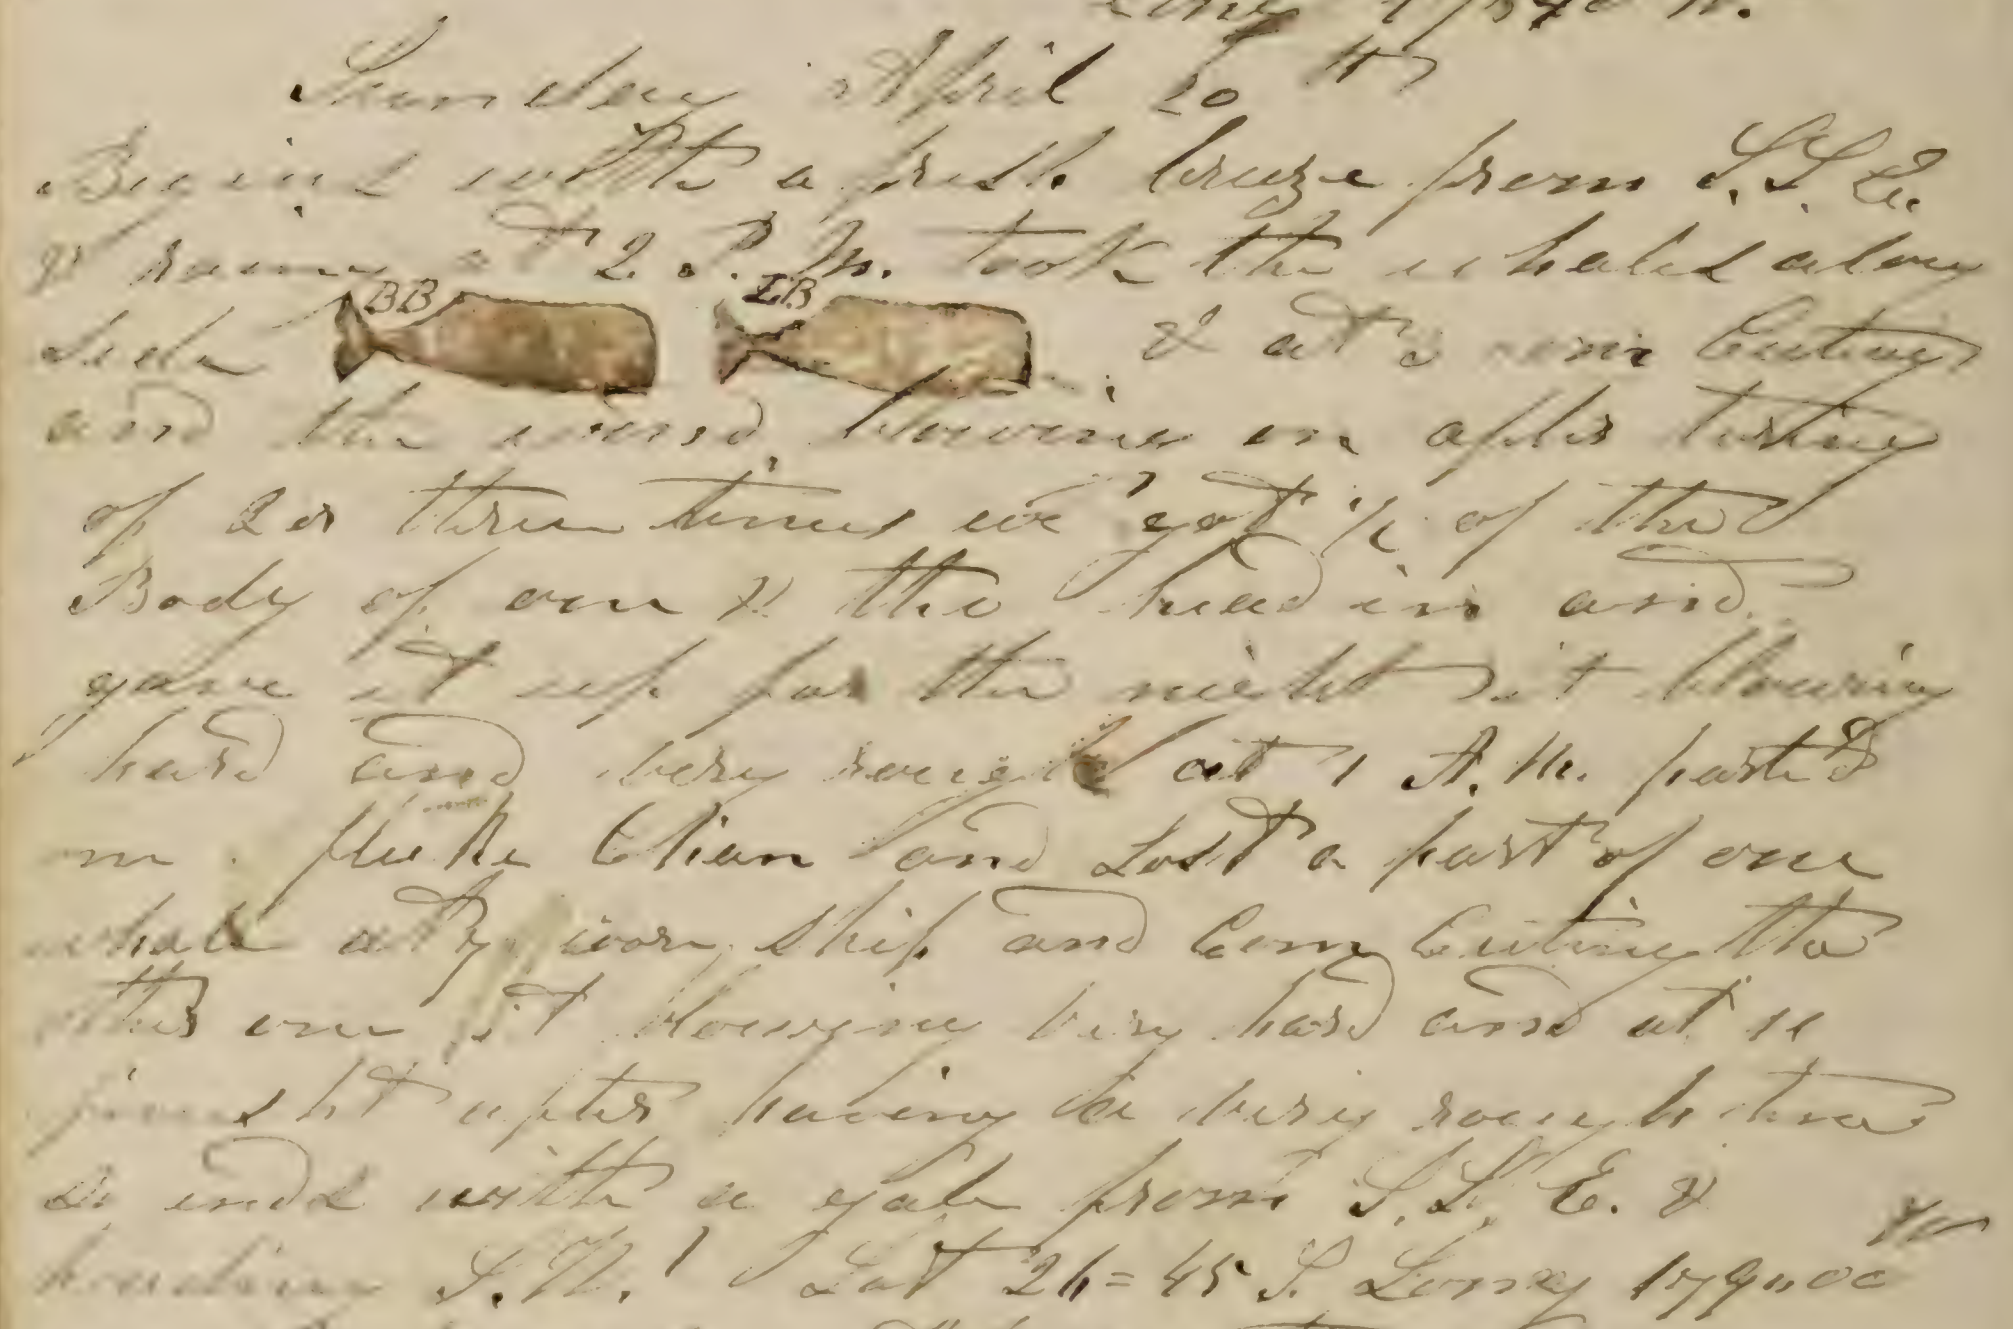 Sunday April 20th
Begins with a fresh breeze from S.S.E.
& rainy at 2 P.M. took the whales along
side BB LB & at 3 Cuting
and the wind blowing on after turing
of 2 or three times we got 1/2 of the
Body of one & the head in and
gave it up for the night it blowing
hard and very rough at 1 A.M. parted
fluke Chian and Lost a part of one
whale at 7 wore ship and Com Cuting the
other one it blowing very hard and at 11
finesht after having a very rough time
So ends with a gale from S.S.E. &
heading S.W. Lat 26=45 S. Long 179"00 W